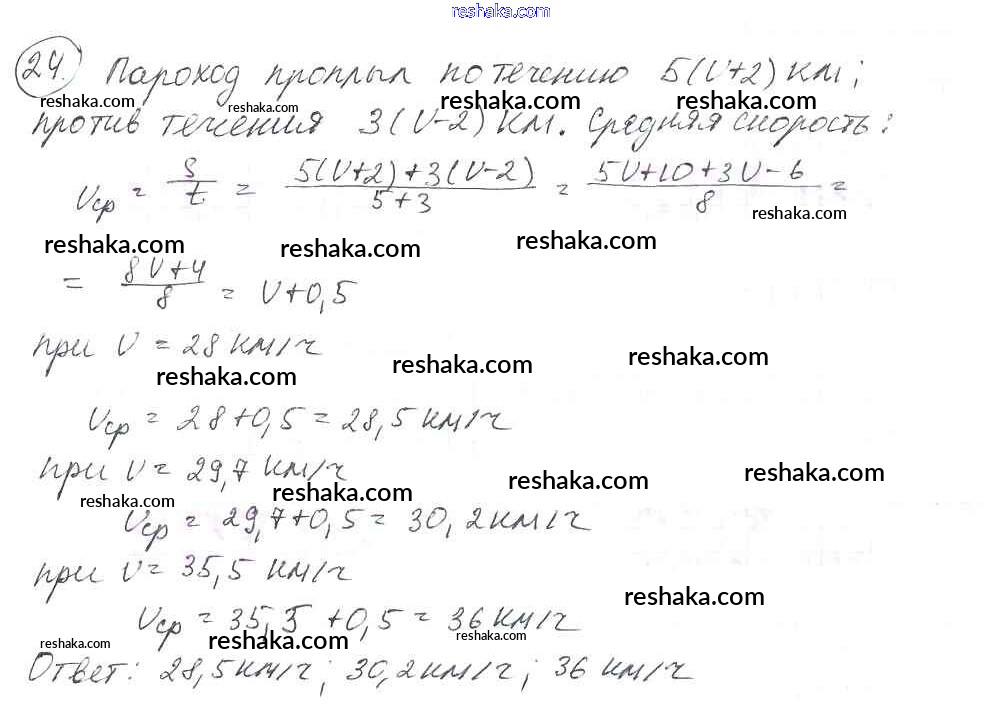 reshaka.com
24. Пароход проплыл по течению 5(V+2) км;
reshaka.com reshaka.com reshaka.com reshaka.com
против течения 3(V-2) км. Средняя скорость:
Vср = S/t = (5(V+2)+3(V-2))/(5+3) = (5V+10+3V-6)/8 =
reshaka.com
reshaka.com reshaka.com reshaka.com
= (8V+4)/8 = V+0,5
при V = 28 км/ч
reshaka.com reshaka.com reshaka.com
Vср = 28+0,5 = 28,5 км/ч
при V = 29,7 км/ч
reshaka.com reshaka.com reshaka.com reshaka.com
Vср = 29,7+0,5 = 30,2 км/ч
при V = 35,5 км/ч
reshaka.com
Vср = 35,5 +0,5 = 36 км/ч
reshaka.com reshaka.com reshaka.com
Ответ: 28,5 км/ч; 30,2 км/ч; 36 км/ч